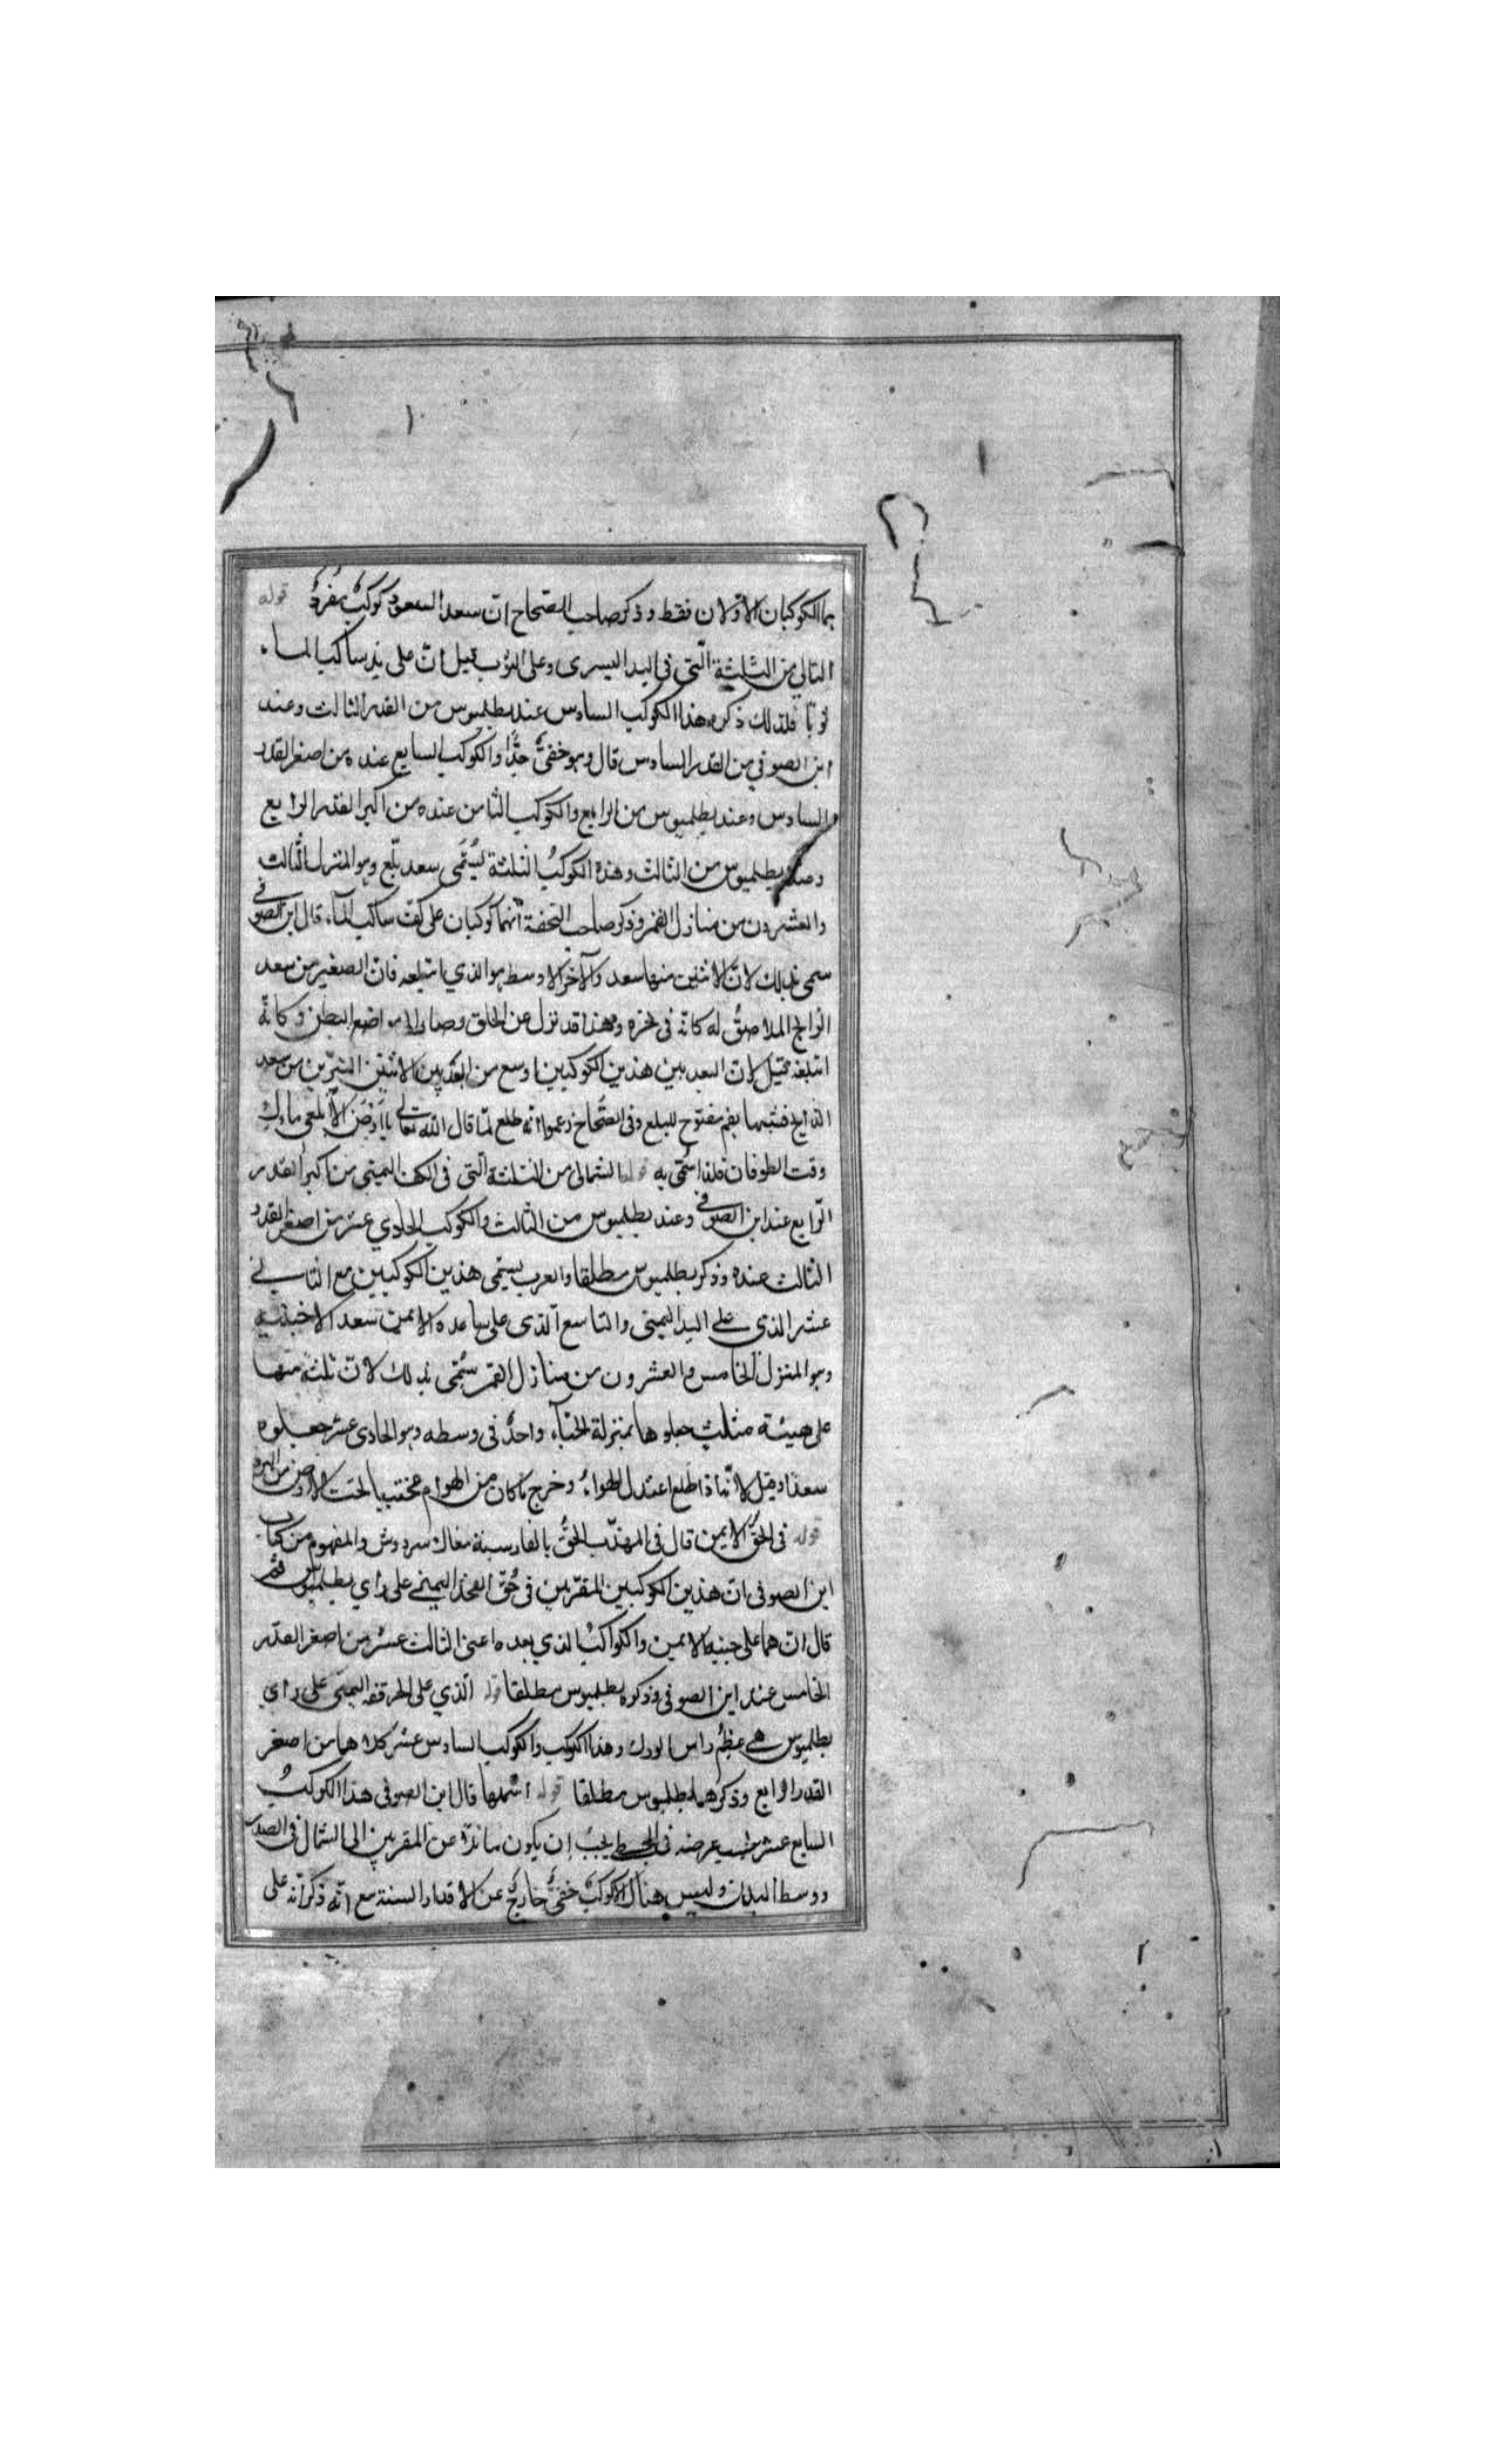 هما الكوكبان الاوّلان فقط وذكر صاحب الصّحاح انّ سعد السعود كوكبٌ مفردٌ قوله
التالي من الثلثة الّتي في اليد اليسرى وعلى الثوب قيل انّ على يد ساكب الماء
ثوبًا فلذلك ذكره هذا الكوكب السادس عند بطلميوس من القدر الثالث وعند
ابن الصوفي من القدر السادس قال وهو خفيٌّ جدًّا والكوكب السابع عنده من اصغر القدر
السادس وعند بطلميوس من الرابع والكوكب الثامن عنده من اكبر القدر الرابع
وعند بطلميوس من الثالث وهذه الكوكبُ الثلثة يُسَمّى سعد بلع وهو المنزل الثالث
والعشرون من منازل القمر وذكر صاحب التحفة انّهما كوكبان على كفّ ساكب الماء قال ابن الصوفي
سمى بذلك لانّ الاثنين منها سعد والآخر الاوسط هو الذي ابتلعه فانّ الصغير من سعد
الذابح الملاصقُ له كانّه في نحره وهذا قد نزل عن الحلق وصار الى مواضع البطن وكانّه
ابتلعه وقيل لانّ البعد بين هذين الكوكبين اوسع من البعد بين الاثنين النيّرين من سعد
الذابح فشبهها بفم مفتوح للبلع وفي الصّحاح زعموا انّه طلع لمّا قال الله تعالى يا أرضُ ابلعي ماءك
وقت الطوفان فلذا سُمّى به قوله الشمالي من الثلثة الّتي في الكف اليمنى من اكبر القدر
الرّابع عند ابن الصوفي وعند بطلميوس من الثالث والكوكب الحادي عشر من اصغر القدر
الثالث عنده وذكر بطلميوس مطلقا والعرب يسمّى هذين الكوكبين مع الثاني
عشر الذي على اليد اليمنى والتاسع الّذي على ساعده الايمن سعد الاخبية
وهو المنزل الخامس والعشرون من منازل القمر سُمّى بذلك لانّ ثلثة منها
على هيئة مثلث جعلوها بمنزلة الخباء وواحدٌ في وسطه وهو الحادي عشر جعلوه
سعدًا وقيل لانّها اذا طلع اعتدل الهواءُ وخرج ما كان من الهوام مختبيا تحت الارض من البرد
قوله في الحُقّ الايمن قال في المهذّب الحُقُّ بالفارسية مغاك سر دوش والمفهوم من كتاب
ابن الصوفي انّ هذين الكوكبين المتقرّبين في حُقّ الفخذ اليمنى على راي بطلميوس
قال انّ هما على جنبه الايمن والكواكبُ الذي بعده اعني الثالث عشر من اصغر القدر
الخامس عند ابن الصوفي وذكره بطلميوس مطلقا قوله الّذي على الحرقفة اليمنى على راي
بطلميوس هي عظم راس الورك وهذا الكوكب والكوكب السادس عشر كلاهما من اصغر
القدر الرابع وذكرهما بطلميوس مطلقا قوله اشملها قال ابن الصوفي هذا الكوكبُ
السابع عشر عرضه في المجسطي يجب ان يكون عن المقربين الى الشمال في الصدر
ووسط البدن وليس هناك الا كوكبٌ خفيٌّ خارجٌ عن الاقدار الستة مع انّه ذكر انّه على